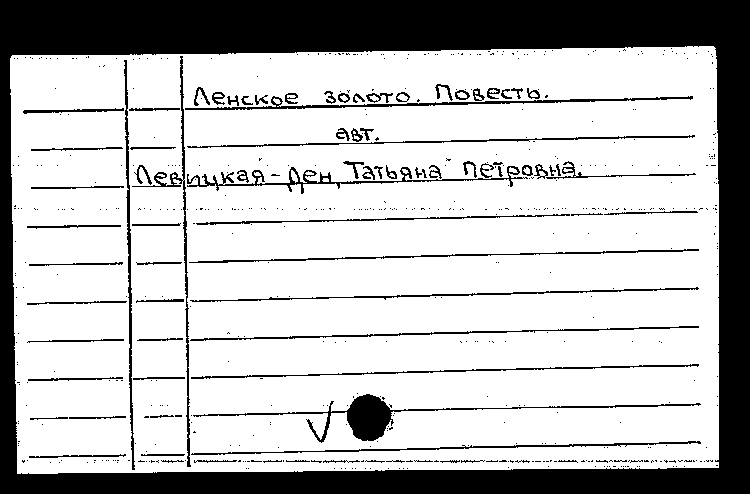 Ленское золото. Повесть.
авт.
Левицкая-Ден, Татьяна Петровна.